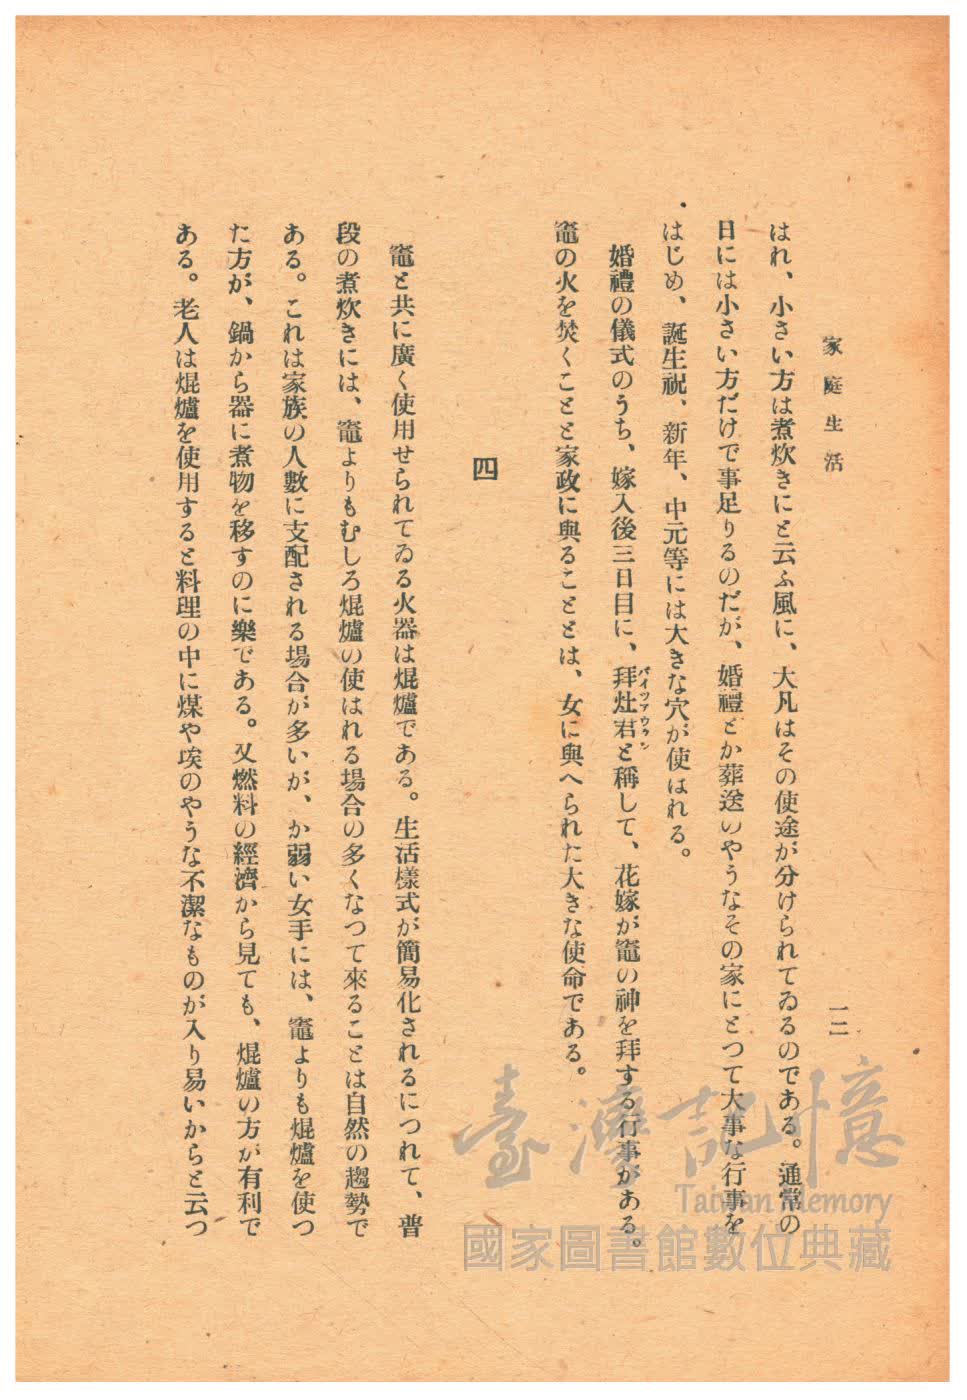 家庭生活
一二
はれ、小さい方は煮炊きにと云ふ風に、大凡はその使途が分けられてゐるのである。通常の
日には小さい方だけで事足りるのだが、婚禮とか葬送のやうなその家にとつて大事な行事を
はじめ、誕生祝、新年、中元等には大きな穴が使はれる。
婚禮の儀式のうち、嫁入後三日目に、拜灶君と稱して、花嫁が竈の神を拜する行事がある。
バイツアウクン
竈の火を焚くことと家政に與ることとは、女に與へられた大きな使命である。
四
竈と共に廣く使用せられてゐる火器は焜爐である。生活樣式が簡易化されるにつれて、普
段の煮炊きには、竈よりもむしろ焜爐の使はれる場合の多くなつて來ることは自然の趨勢で
ある。これは家族の人數に支配される場合が多いが、か弱い女手には、竈よりも焜爐を使つ
た方が、鍋から器に煮物を移すのに樂である。又燃料の經濟から見ても、焜爐の方が有利で
ある。老人は焜爐を使用すると料理の中に煤や埃のやうな不潔なものが入り易いからと云つ
臺灣記憶
Taiwan Memory
國家圖書館數位典藏